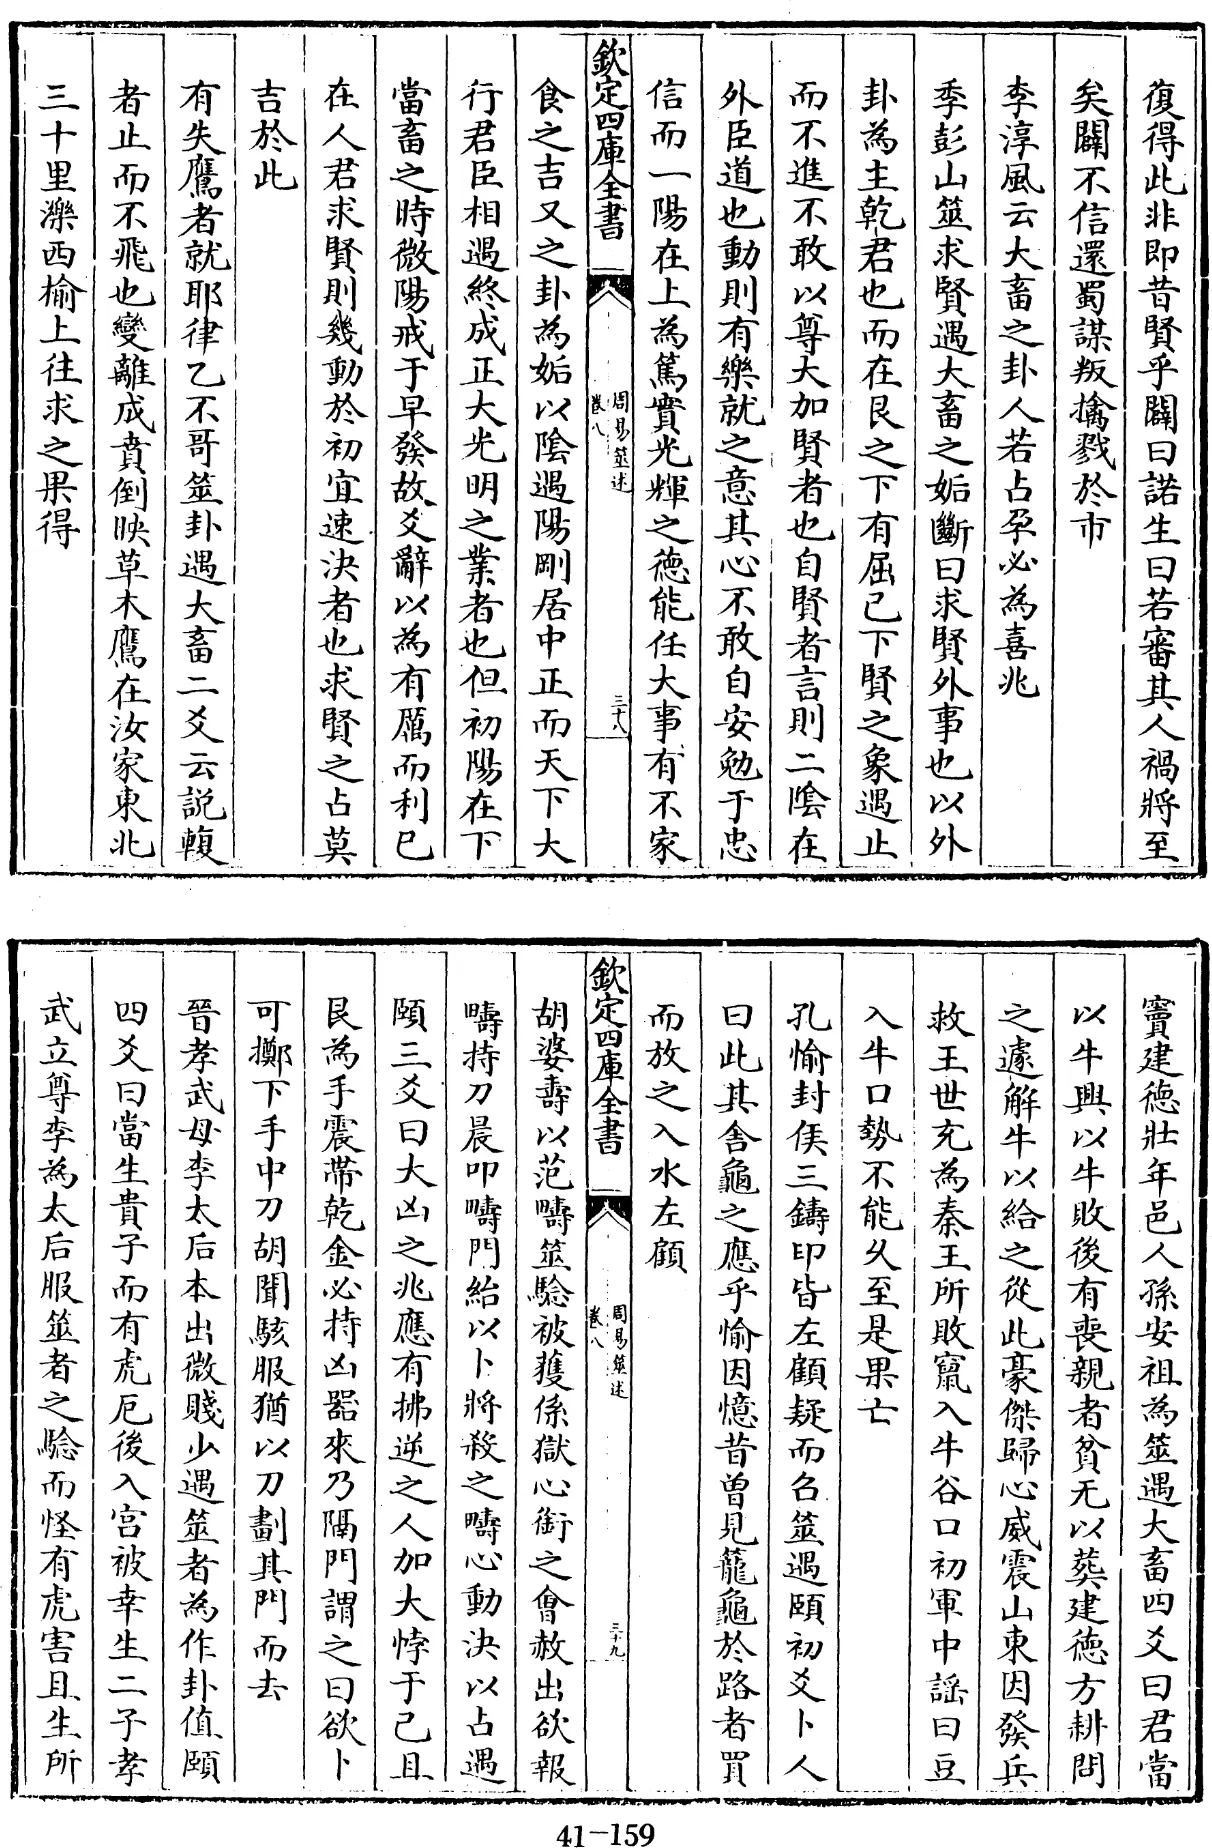 復得此非即昔賢乎闢曰諾生曰若審其人禍將至
矣闢不信還蜀謀叛擒戮於市
李淳風云大畜之卦人若占孕必為喜兆
季彭山筮求賢遇大畜之姤斷曰求賢外事也以外
卦為主乾君也而在艮之下有屈己下賢之象遇止
而不進不敢以尊大加賢者也自賢者言則二陰在
外臣道也動則有樂就之意其心不敢自安勉于忠
信而一陽在上為篤實光輝之德能任大事有不家
欽定四庫全書
周易筮述
卷八
三十八
食之吉又之卦為姤以陰遇陽剛居中正而天下大
行君臣相遇終成正大光明之業者也但初陽在下
當畜之時微陽戒于早發故爻辭以為有厲而利已
在人君求賢則幾動於初宜速決者也求賢之占莫
吉於此
有失鷹者就耶律乙不哥筮卦遇大畜二爻云説輹
者止而不飛也變離成賁倒映草木鷹在汝家東北
三十里濼西榆上往求之果得
竇建德壯年邑人孫安祖為筮遇大畜四爻曰君當
以牛興以牛敗後有喪親者貧无以葬建德方耕問
之遽解牛以給之從此豪傑歸心威震山東因發兵
救王世充為秦王所敗竄入牛谷口初軍中謡曰豆
入牛口勢不能久至是果亡
孔愉封侯三鑄印皆左顧疑而名筮遇頤初爻卜人
曰此其舍龜之應乎愉因憶昔曾見籠龜於路者買
而放之入水左顧
欽定四庫全書
周易筮述
卷八
三十九
胡婆壽以范疇筮驗被獲係獄心銜之會赦出欲報
疇持刀晨叩疇門紿以卜將殺之疇心動決以占遇
頤三爻曰大凶之兆應有拂逆之人加大悖于己且
艮為手震帶乾金必持凶器來乃隔門謂之曰欲卜
可擲下手中刀胡聞駭服猶以刀劃其門而去
晉孝武母李太后本出微賤少遇筮者為作卦值頤
四爻曰當生貴子而有虎厄後入宫被幸生二子孝
武立尊李為太后服筮者之驗而怪有虎害且生所
41-159